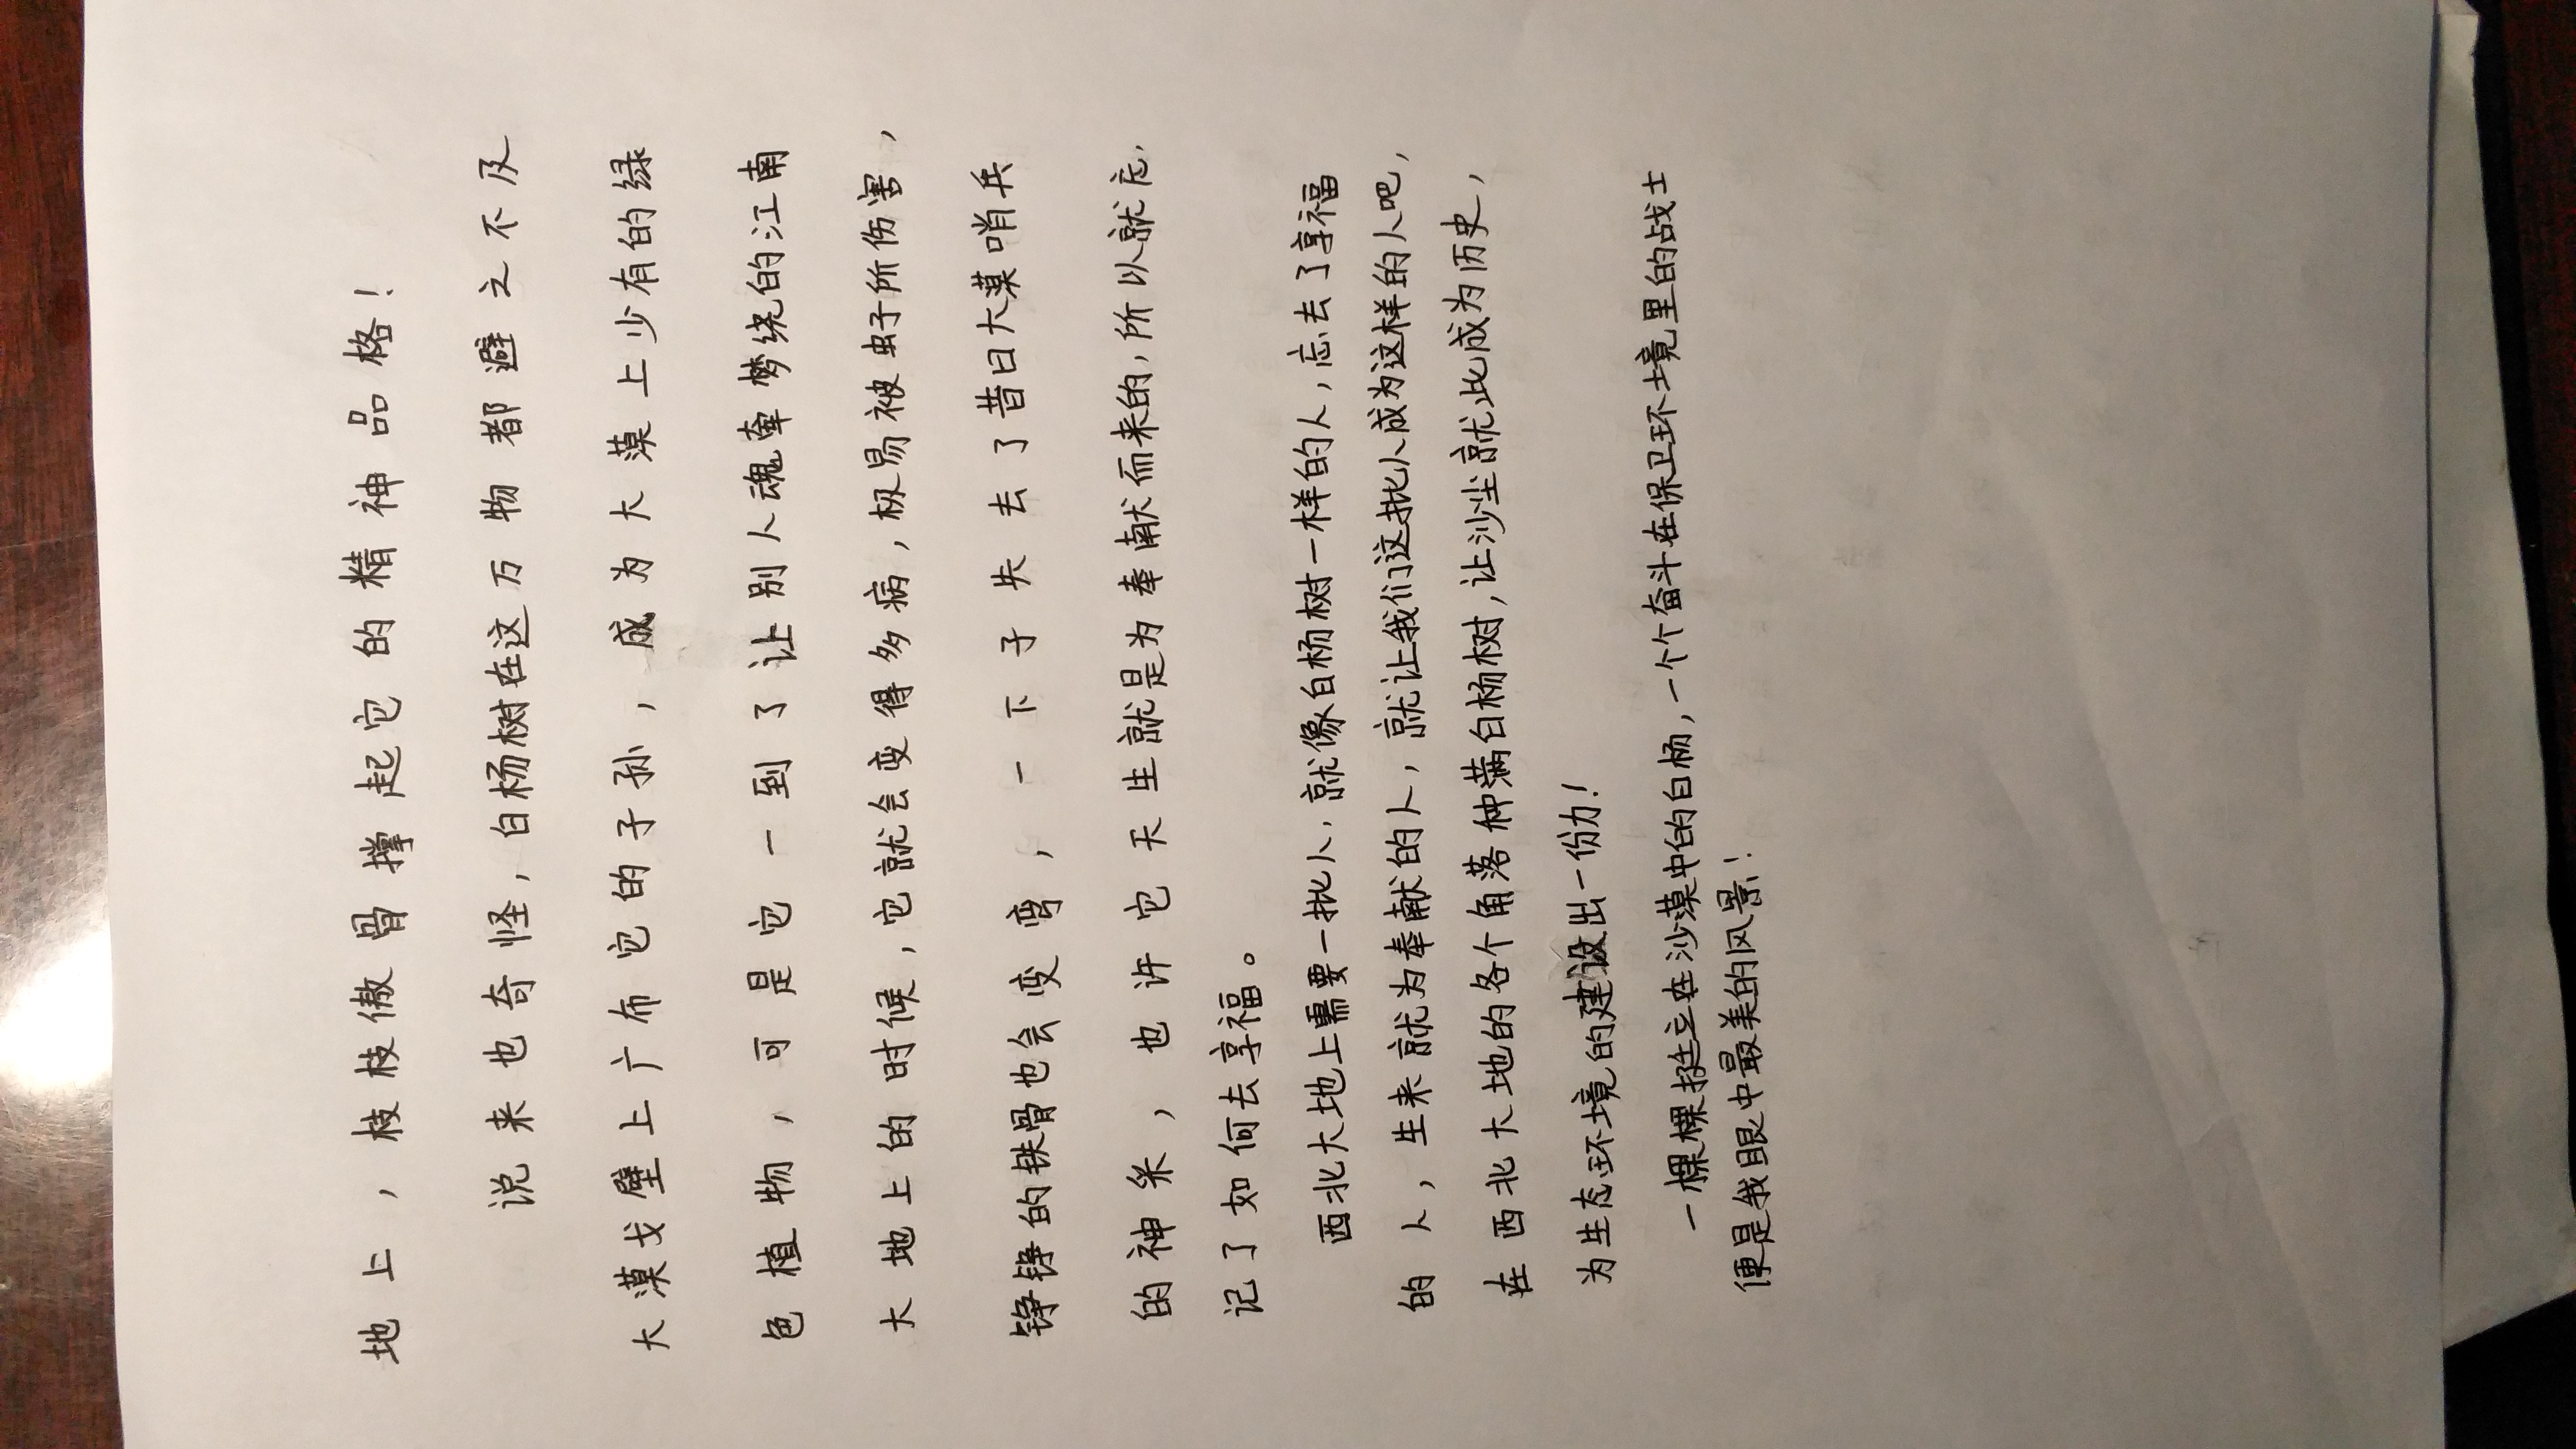 地上，枝枝傲骨撑起它的精神品格！
说来也奇怪，白杨树在这万物都避之不及
大漠戈壁上广布它的子孙，成为大漠上少有的绿
色植物，可是它一到了让别人魂牵梦绕的江南
大地上的时候，它就会变得多病，极易被虫子所伤害，
铮铮的铁骨也会变弯，一下子失去了昔日大漠哨兵
的神采，也许它天生就是为奉献而来的，所以就忘
记了如何去享福。
西北大地上需要一批人，就像白杨树一样的人，忘去了享福
的人，生来就为奉献的人，就让我们这批人成为这样的人吧，
在西北大地的各个角落种满白杨树，让沙尘就此成为历史，
为生态环境的建设出一份力！
一棵棵挺立在沙漠中的白杨，一个个奋斗在保卫环境里的战士
便是我眼中最美的风景！